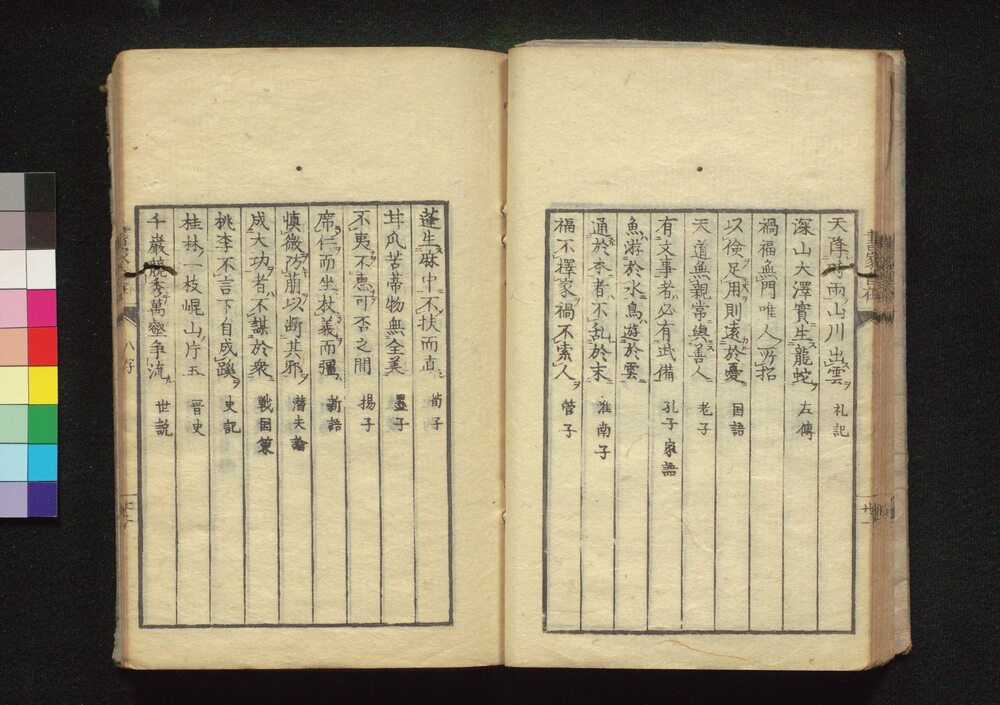 天降時雨山川出雲 礼記
深山大澤實生龍蛇 左傳
禍福無門唯人所招
以儉足用則遠於憂 国語
天道無親常與善人 老子
有文事者必有武備 孔子家語
魚游於水鳥遊於雲
通於本者不乱於末 淮南子
福不擇家禍不索人 管子
蓬生麻中不扶而直 荀子
甘瓜苦蒂物無全美 墨子
不夷不惠可否之間 揚子
席仁而坐杖義而彊 新語
慎微防萠以断其邪 潜夫論
成大功者不謀於衆 戦国策
桃李不言下自成蹊 史記
桂林一枝崐山片玉 晋史
千巌競秀萬壑争流 世説